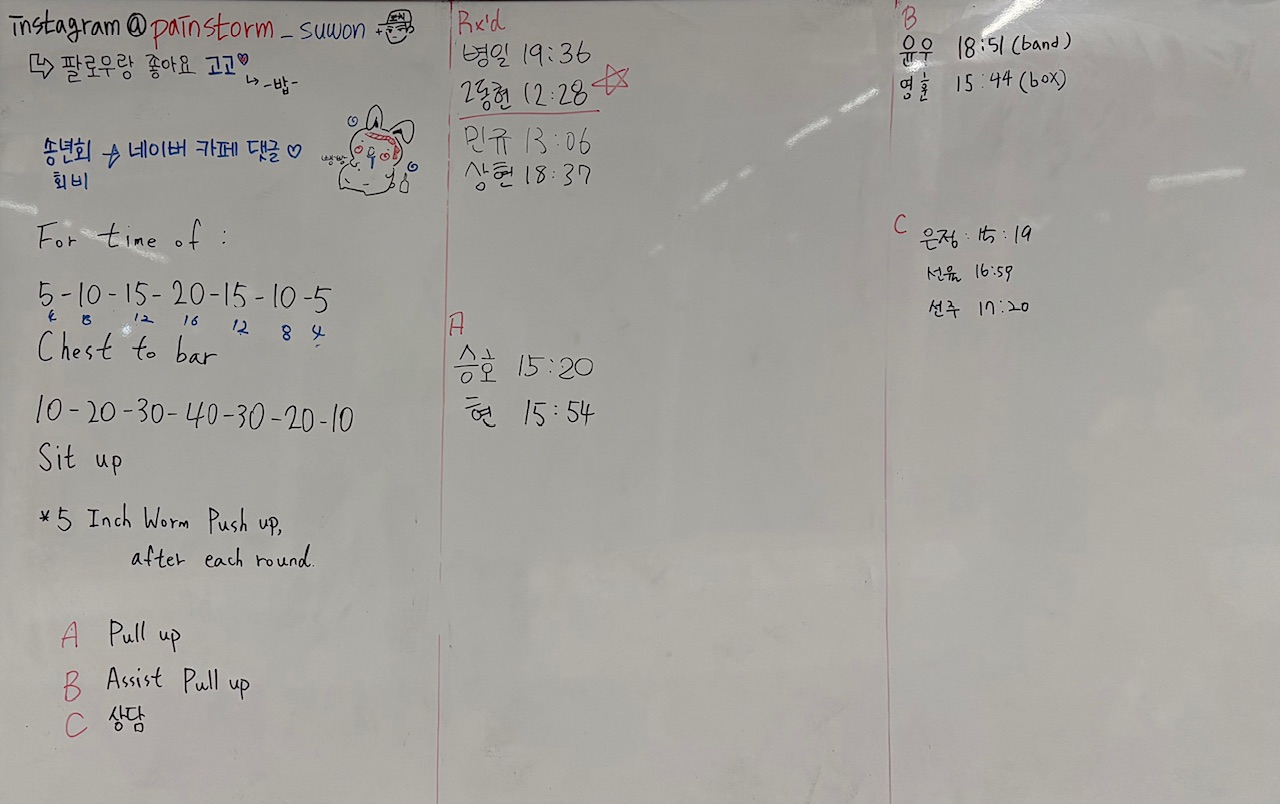 instagram @ painstorm_suwon
팔로우랑 좋아요 고고♥
-밥-
송년회 → 네이버 카페 댓글 ♡
회비
빵빵
For time of :
5-10-15-20-15-10-5
4 8 12 16 12 8 4
Chest to bar
10-20-30-40-30-20-10
Sit up
*5 Inch Worm Push up,
after each round.
A Pull up
B Assist Pull up
C 상담
Rx'd
병일 19:36
2동현 12:28
민규 13:06
상현 18:37
A
승호 15:20
현 15:54
B
윤우 18:51 (band)
영훈 15:44 (box)
C 은정 : 15:19
선율 16:59
선주 17:20